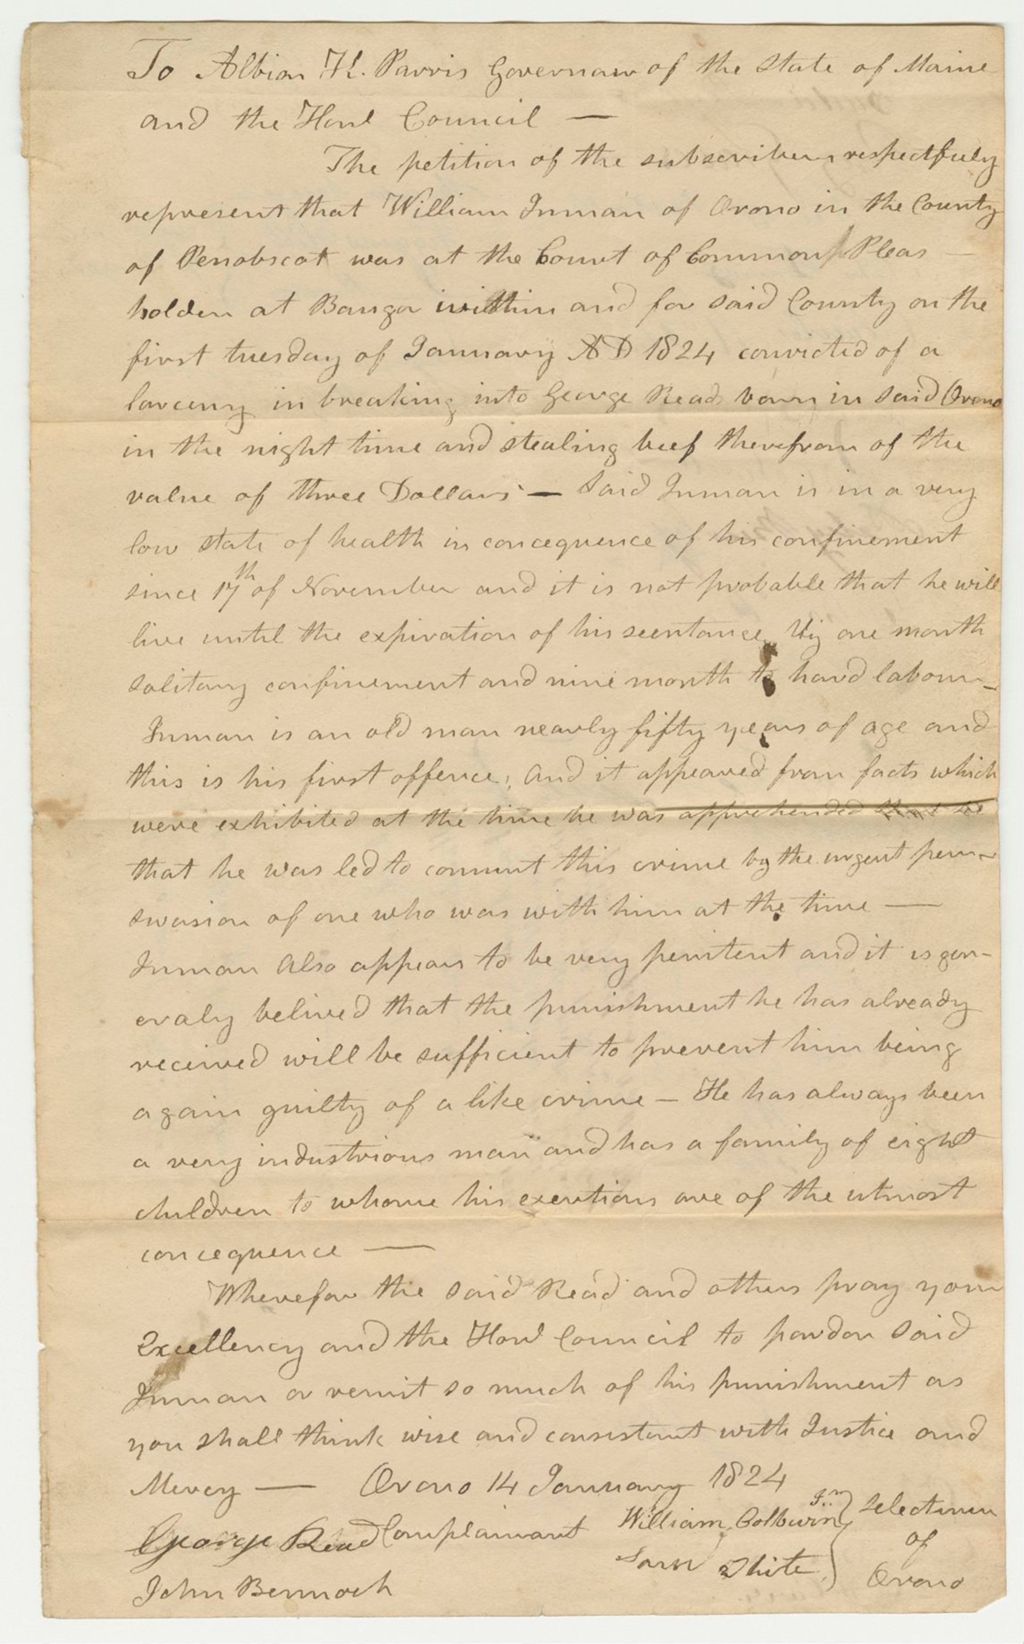 To Albion K. Parris Governour of the State of Maine
and the Honl Council —
The petition of the subscribers respectfuly
represent that William Inman of Orono in the County
of Penobscot was at the Court of Common Pleas —
holden at Bangor within and for said County on the
first tuesday of January AD 1824 convicted of a
larceny in breaking into George Reads barn in said Orono
in the night time and stealing beef therefrom of the
value of three Dollars — Said Inman is in a very
low state of health in concequence of his confinement
since 17th of November and it is not probable that he will
live until the expiration of his seentance Viz one month
solitary confinement and nine month to hard labour —
Inman is an old man nearly fifty years of age and
this is his first offence, and it appeared from facts which
were exhibited at the time he was apprehended that he
that he was led to commit this crime by the urgent per-
swasion of one who was with him at the time —
Inman Also appears to be very penitent and it is gen-
eraly belived that the punishment he has already
received will be sufficient to prevent him being
again guilty of a like crime — He has always been
a very industrious man and has a family of eight
children to whome his exertions are of the utmost
concequence —
Wherefor the said Read and others pray your
Excellency and the Honl Council to pardon said
Inman or remit so much of his punishment as
you shall think wise and consistant with Justice and
Mercy — Orono 14 January 1824
George Read Complainant William Colburn Jn } Selectmen
White } of
John Bennoch Orono